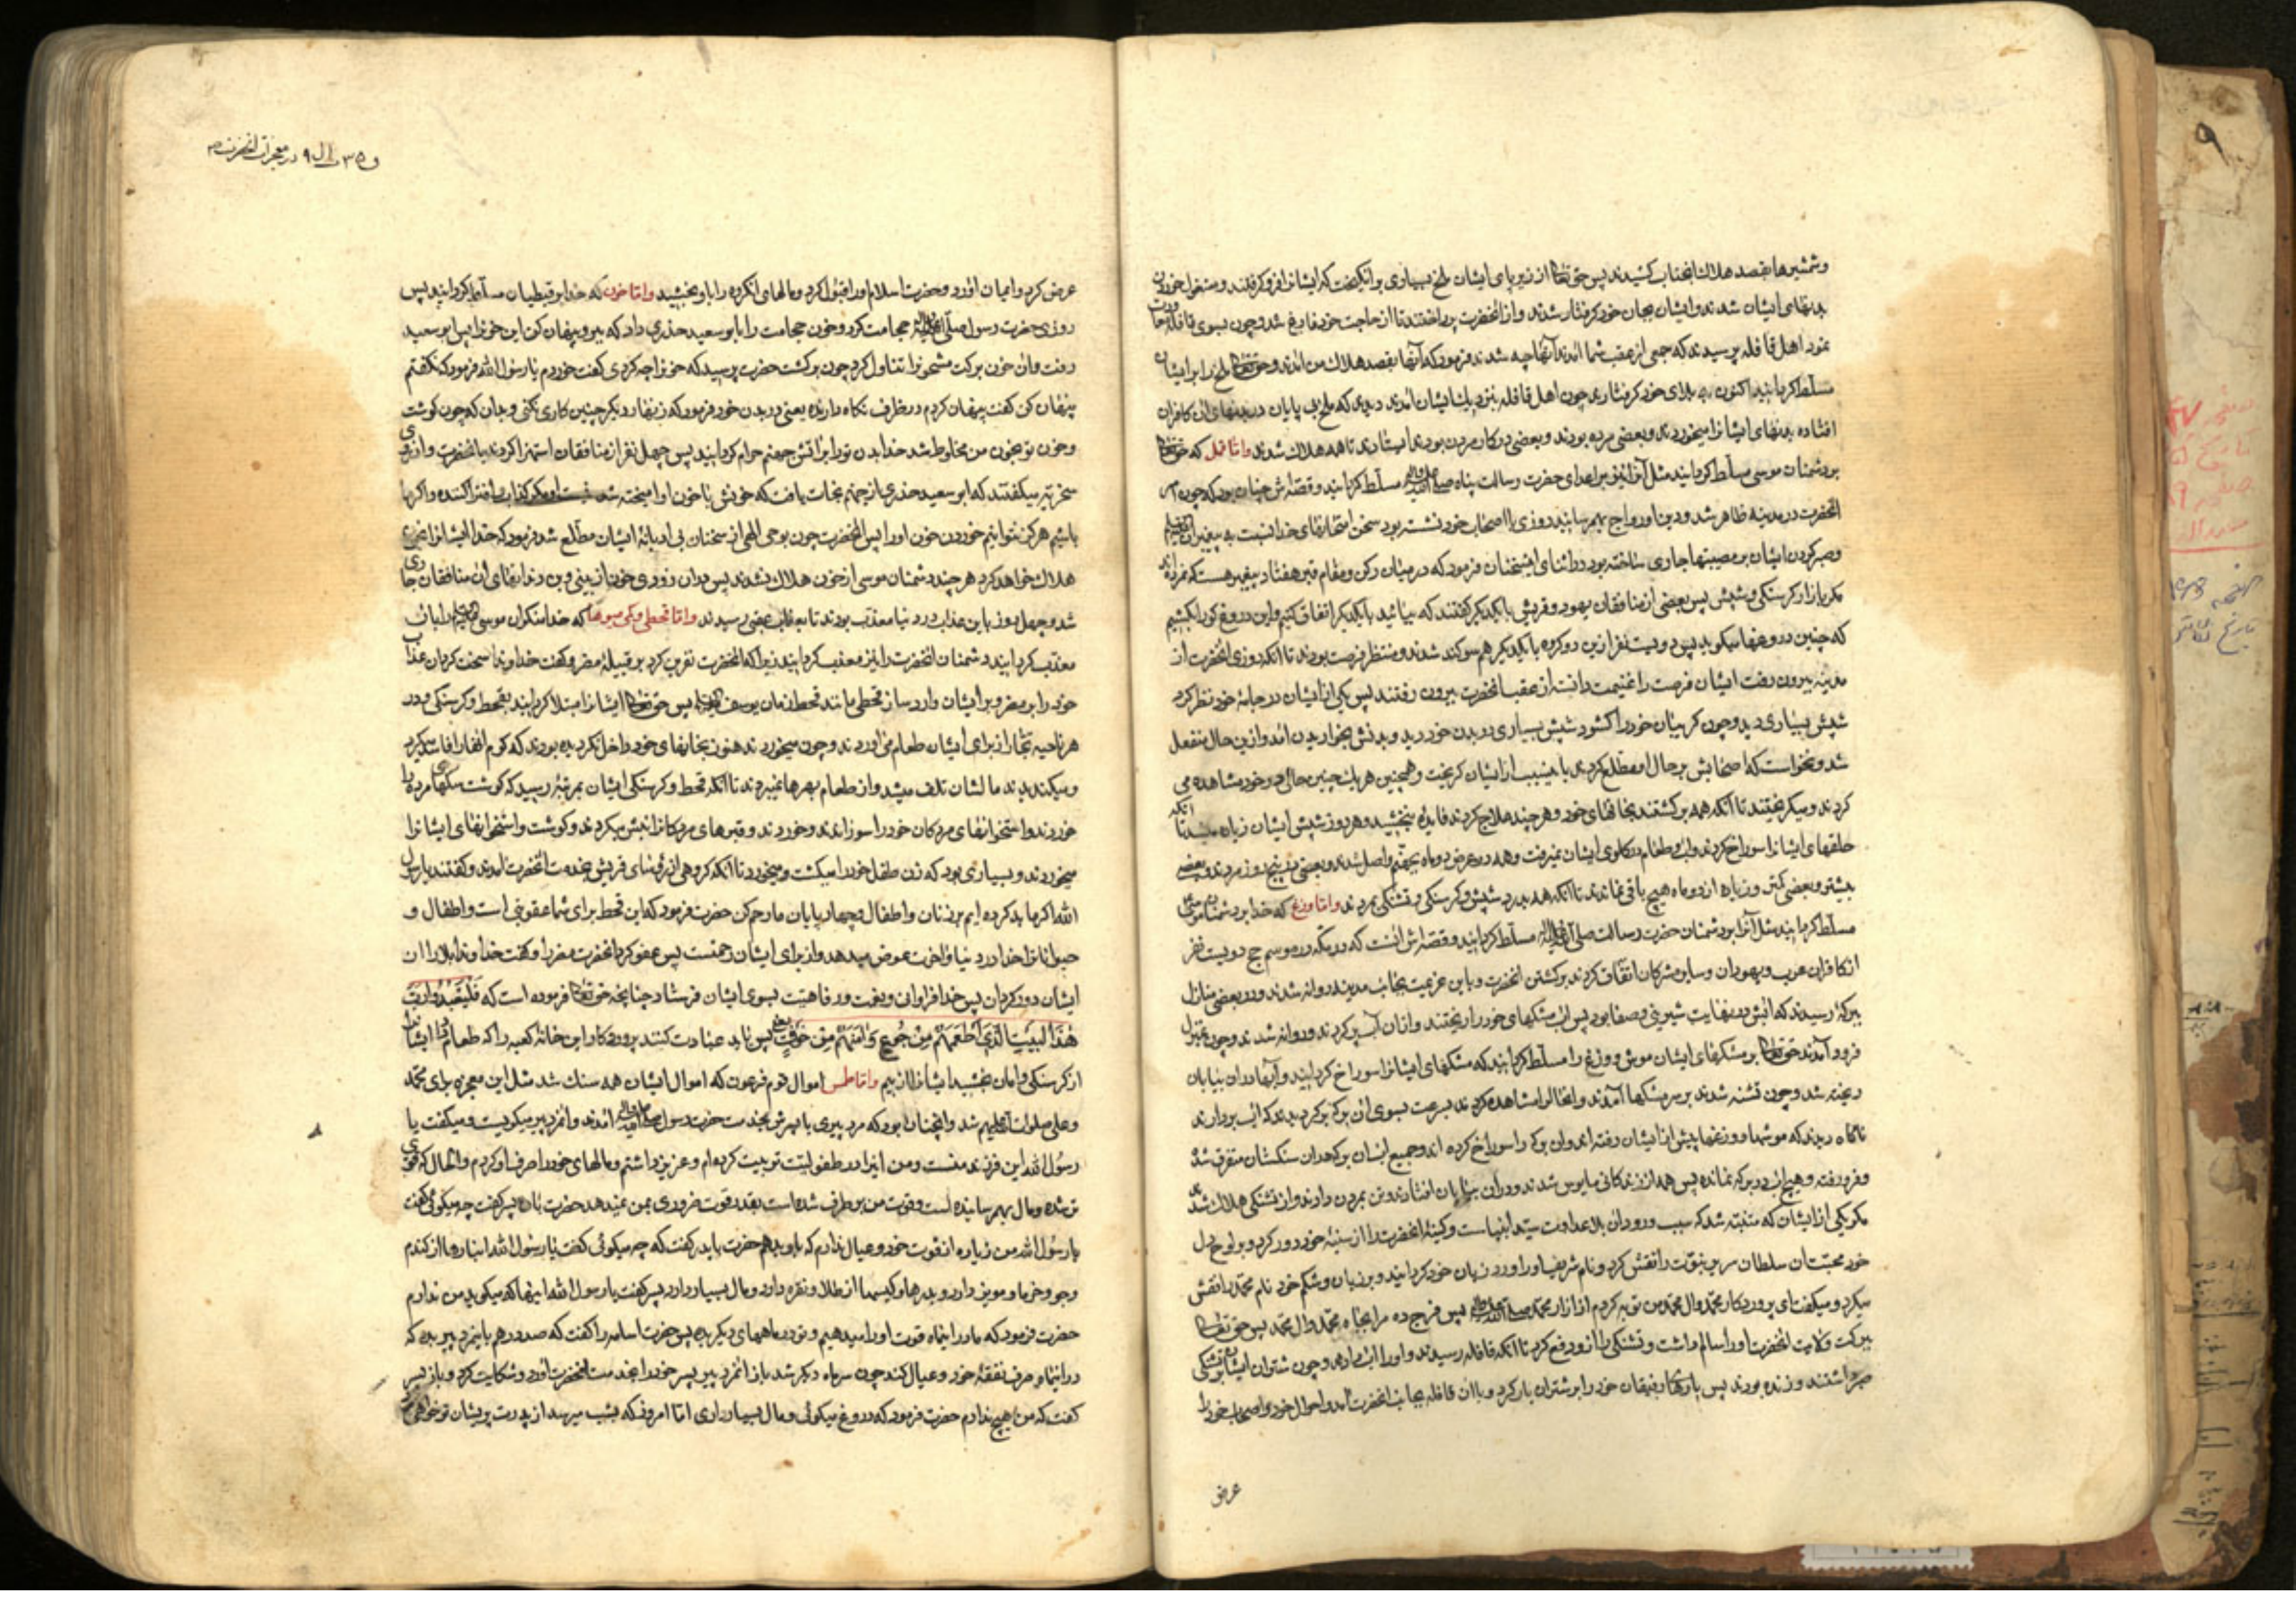 و شمشیرها بقصد هلاک انجناب کشیدند پس حق تعالی از زیر پای ایشان ملخ بسیاری برانگیخت که ایشانرا فرو گرفتند و مشغول خوردن
بدنهای ایشان شدند و ایشان بجان خود گرفتار شدند و از انحضرت پرداختند تا از حاجت خود فارغ شد و چون بسوی قافله
نمود اهل قافله پرسیدند که جمعی از عقب شما آمدند آنها چه شدند فرمود که آنها بقصد هلاک من آمدند و حق تعالی ملخ را بر ایشان
مسلّط گردانید اکنون ببلای خود گرفتارند چون اهل قافله بنزدیک ایشان آمدند دیدند که ملخ بی پایان در بدنهای ان کافران
افتاده بدنهای ایشانرا میخوردند و بعضی مرده بودند و بعضی در کار مردن بودند ایستادند تا همه هلاک شدند و امّا قمل که حق تعالی
بر دشمنان موسی مسلّط گردانید مثل آنرا نیز بر اعدای حضرت رسالت پناه صلی الله علیه و اله مسلّط گردانید و قصّه اش چنان بود که چون امر
انحضرت در مدینه ظاهر شد و دین او رواج بهم رسانید روزی با اصحاب خود نشسته بود سخن امتحانهای خدا نسبت به پیغمبران
و صبر کردن ایشان بر مصیبتها جاری ساخته بود در اثنای این سخنان فرمود که در میان رکن و مقام قبر هفتاد پیغمبر هست که نمرده اند
مگر بازار گرسنگی و شپش پس بعضی از منافقان یهود و قریش با یکدیگر گفتند که بیائید با یکدیگر اتفاق کنیم و این دروغ گو را بکشیم
که چنین دروغها میگوید پس دویست نفر ازین دو گروه با یکدیگر هم سوگند شدند و منتظر فرصت بودند تا آنکه روزی انحضرت از
مدینه بیرون رفت ایشان فرصت را غنیمت دانسته از عقب انحضرت بیرون رفتند پس یکی از ایشان در جامهٔ خود نظر کرد
شپش بسیاری دید و چون گریبان خود را گشود شپش بسیاری در بدن خود دید و بدنش بخاریدن آمد و ازین حال منفعل
شد و نخواست که اصحابش بر حال او مطلع گردند باینسبب از ایشان گریخت و همچنین هر یک چنین حالی در خود مشاهده می
کردند و میگریختند تا آنکه همه برگشتند بخانهای خود و هر چند علاج کردند فایده نبخشید و هر روز شپش ایشان زیاده میشد تا انکه
حلقهای ایشانرا سوراخ کردند و اب و طعام در گلوی ایشان نمیرفت و همه در عرض دو ماه بجهنّم واصل شدند و بعضی در پنج روز مردند و بعضی
بیشتر و بعضی کمتر و زیاده از دو ماه هیچ باقی نماندند تا آنکه همه بدرد شپش و گرسنگی و تشنگی مردند و امّا وزغ که خدا بر دشمنان موسی
مسلّط گردانید مثل آنرا بر دشمنان حضرت رسالت صلی الله علیه و اله مسلّط گردانید و قصّه اش انست که در مکّه در موسم حج دویست نفر
از کافران عرب و یهودان و سایر مشرکان اتّفاق کردند بر کشتن انحضرت و باین عزیمت بجانب مدینه روانه شدند و در بعضی منازل
ببرکهٔ رسیدند که آبش در نهایت شیرینی و صفا بود پس اب مشکهای خود را ریختند و ازان آب پر کردند و روانه شدند و چون بمنزل
فرود آمدند حق تعالی بر مشکهای ایشان موش و وزغ را مسلّط گردانید که مشکهای ایشانرا سوراخ گردانید و آبها دران بیابان
ریخته شد و چون تشنه شدند بر سر مشکها آمدند و انحال را مشاهده کردند بسرعت بسوی ان برکه برگردیدند که اب بردارند
ناگاه دیدند که موشها و وزغها پیش از ایشان رفته اند و ان برکه را سوراخ کرده اند و جمیع آبشان برکه دران سنگستان متفرق شده
و فرو رفته و هیچ آب در برکه نمانده پس همه از زندگانی مایوس شدند و دران بیابان افتادند و تن بمردن دادند و از تشنگی هلاک شدند
مگر یکی از ایشان که متنبّه شد که سبب ورود ان بلا عداوت سیّد انبیاست و کینهٔ انحضرت را از سینهٔ خود دور کرد و بر لوح دل
خود محبّت ان سلطان سریر نبوّت را نقش کرد و نام شریف او را ورد زبان خود گردانید و بر زبان و شکم خود نام محمّد را نقش
میکرد و میگفت ای پروردگار محمّد و ال محمّد من توبه کردم از ازار محمّد صلی الله علیه و اله پس فرج ده مرا بجاه محمّد و ال محمّد پس حق تعالی
ببرکت ولایت انحضرت او را سالم داشت و تشنگی را از او دفع کرد تا انکه قافله رسیدند و او را اب دادند و چون شتران ایشان بر تشنگی
صبر داشتند و زنده بودند پس بارها و رفیقان خود را بر شتران بار کرد و با ان قافله بجانب انحضرت آمد و احوال خود و اصحاب خود را
عرض
عرض کرد و ایمان اورد و حضرت اسلام او را قبول کرد و مالهای انگروه را باو بخشید و امّا خون که خدا بر قبطیان مسلّط گردانید پس
روزی حضرت رسول صلی الله علیه و اله حجامت کرد و خون حجامت را بابو سعید خدری داد که ببر و پنهان کن این خونرا پس ابو سعید
رفت و ان خون برکت مشحونرا تناول کرد چون برگشت حضرت پرسید که خونرا چه کردی گفت خوردم یا رسول الله فرمود که نگفتم
پنهان کن گفت پنهان کردم در ظرف نگاه دارنده یعنی در بدن خود فرمود که زنهار دیگر چنین کاری نکنی و بدان که چون گوشت
و خون تو بخون من مخلوط شد خدا بدن تو را بر اتش جهنم حرام گردانید پس چهل نفر از منافقان استهزا کردند بانحضرت و از روی
سخریّه میگفتند که ابو سعید خدری از جهنم نجات یافت که خونش با خون او امیخته شد
باشیم هرگز نتوانیم خوردن خون او را پس انحضرت چون بوحی الهی از سخنان بی ادبانهٔ ایشان مطّلع شد فرمود که خدا ایشانرا بخون
هلاک خواهد کرد هر چند دشمنان موسی از خون هلاک نشدند پس در ان زودی خون از بینی و بن دندانهای ان منافقان جاری
شد و چهل روز باین عذاب در دنیا معذّب بودند تا بعذاب عقبی رسیدند و امّا قحطی و کمی میوها که خدا منکران موسی علیه السلام را بان
معذّب گردانید دشمنان انحضرت را نیز معذب گردانید زیرا که انحضرت نفرین کرد بر قبیلهٔ مضر و گفت خداوندا سخت گردان عذاب
خود را بر مضر و بر ایشان وارد ساز قحطی مانند قحط زمان یوسف علیه السلام پس حق تعالی ایشانرا مبتلا گردانید بقحط و گرسنگی و در
هر ناحیه تجّار از برای ایشان طعام می اوردند و چون میخریدند هنوز بخانهای خود داخل نکرده بودند که کرم انها را فاسد میکرد
و میگندیدند مالشان تلف میشد و از طعام بهره نمیبردند تا انکه قحط و گرسنگی ایشان بمرتبهٔ رسید که گوشت سگهای مرده را
خوردند و استخوانهای مردگان خود را سوزاندند و خوردند و قبرهای مردگانرا نبش میکردند و گوشت و استخوانهای ایشانرا
میخوردند و بسیاری بود که زن طفل خود را میکشت و میخورد تا انکه گروهی از رؤسای قریش بخدمت انحضرت آمدند و گفتند یا رسول
الله اگر ما بد کرده ایم بر زنان و اطفال و چهارپایان ما رحم کن حضرت فرمود که این قحط برای شما عقوبتی است و اطفال و
حیوانانرا خدا در دنیا و اخرت عوض میدهد و از برای ایشان رحمتست پس عفو کرد انحضرت مضر را و گفت خداوندا بلا را از
ایشان دور گردان پس خدا فراوانی و نعمت و رفاهیّت بسوی ایشان فرستاد چنانچه حق تعالی فرموده است که فَلْیَعْبُدُوا رَبَّ
هٰذَا الْبَیْتِ الَّذِی أَطْعَمَهُمْ مِنْ جُوعٍ وَآمَنَهُمْ مِنْ خَوْفٍ پس باید عبادت کنند پروردگار این خانهٔ کعبه را که طعام داد ایشانرا
از گرسنگی و امان بخشید ایشانرا از بیم و امّا طمس اموال قوم فرعون که اموال ایشان همه سنک شد مثل این معجزه برای محمّد
و علی صلوات الله علیهم شد و انچنان بود که مرد پیری با پسرش بخدمت حضرت رسول صلی الله علیه و اله امدند و انمرد پیر میگریست و میگفت یا
رسول الله این فرزند منست و من اینرا در طفولیّت تربیت کرده ام و عزیز داشتم و مالهای خود را صرف او کردم و الحال که قوی
شده و مال بهم رسانیده است و قوت من بر طرف شده است بقدر قوت ضروری بمن نمیدهد حضرت بان پسر گفت چه میگوئی گفت
یا رسول الله من زیاده از قوت خود و عیال ندارم که باو بدهم حضرت با پدر گفت که چه میگوئی گفت یا رسول الله انبارها از گندم
و جو و خرما و مویز دارد و بدرها و کیسها از طلا و نقره دارد و مال بسیار دارد پسر گفت یا رسول الله اینها که میگوید من ندارم
حضرت فرمود که ما در اینماه قوت او را میدهیم و تو در ماههای دیگر بده پس حضرت اسامه را گفت که صد درهم باینمرد پیر بده که
در اینماه صرف نفقهٔ خود و عیال کند چون سر ماه دیگر شد باز انمرد پیر پسر خود را بخدمت انحضرت اورد و شکایت کرد و باز پسر
گفت که من هیچ ندارم حضرت فرمود که دروغ میگوئی و مال بسیار داری امّا امروز که بشب میرسد از پدرت پریشان تر خواهی
در معجزات انحضرت